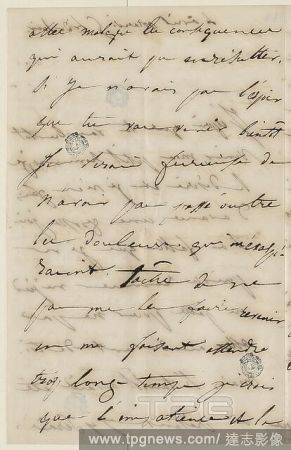 allée malgré les conséquences
qui aurait pu en résulter.
Si je n'avais pas l'espoir
que tu vas venir bientôt
Je serais furieuse de
n'avoir pas passé outre
les douleurs qui
tâche de ne
pas me le faire
en me faisant attendre
trop long temps je crois
que l'impatience et la
www.tpgnews.com
達志影像